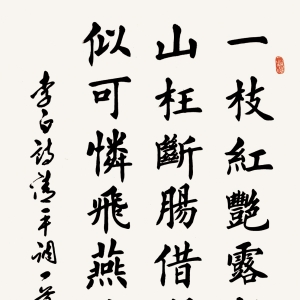 一枝紅艷露
山枉斷腸借
似可憐飛燕
李白詩清平調一首